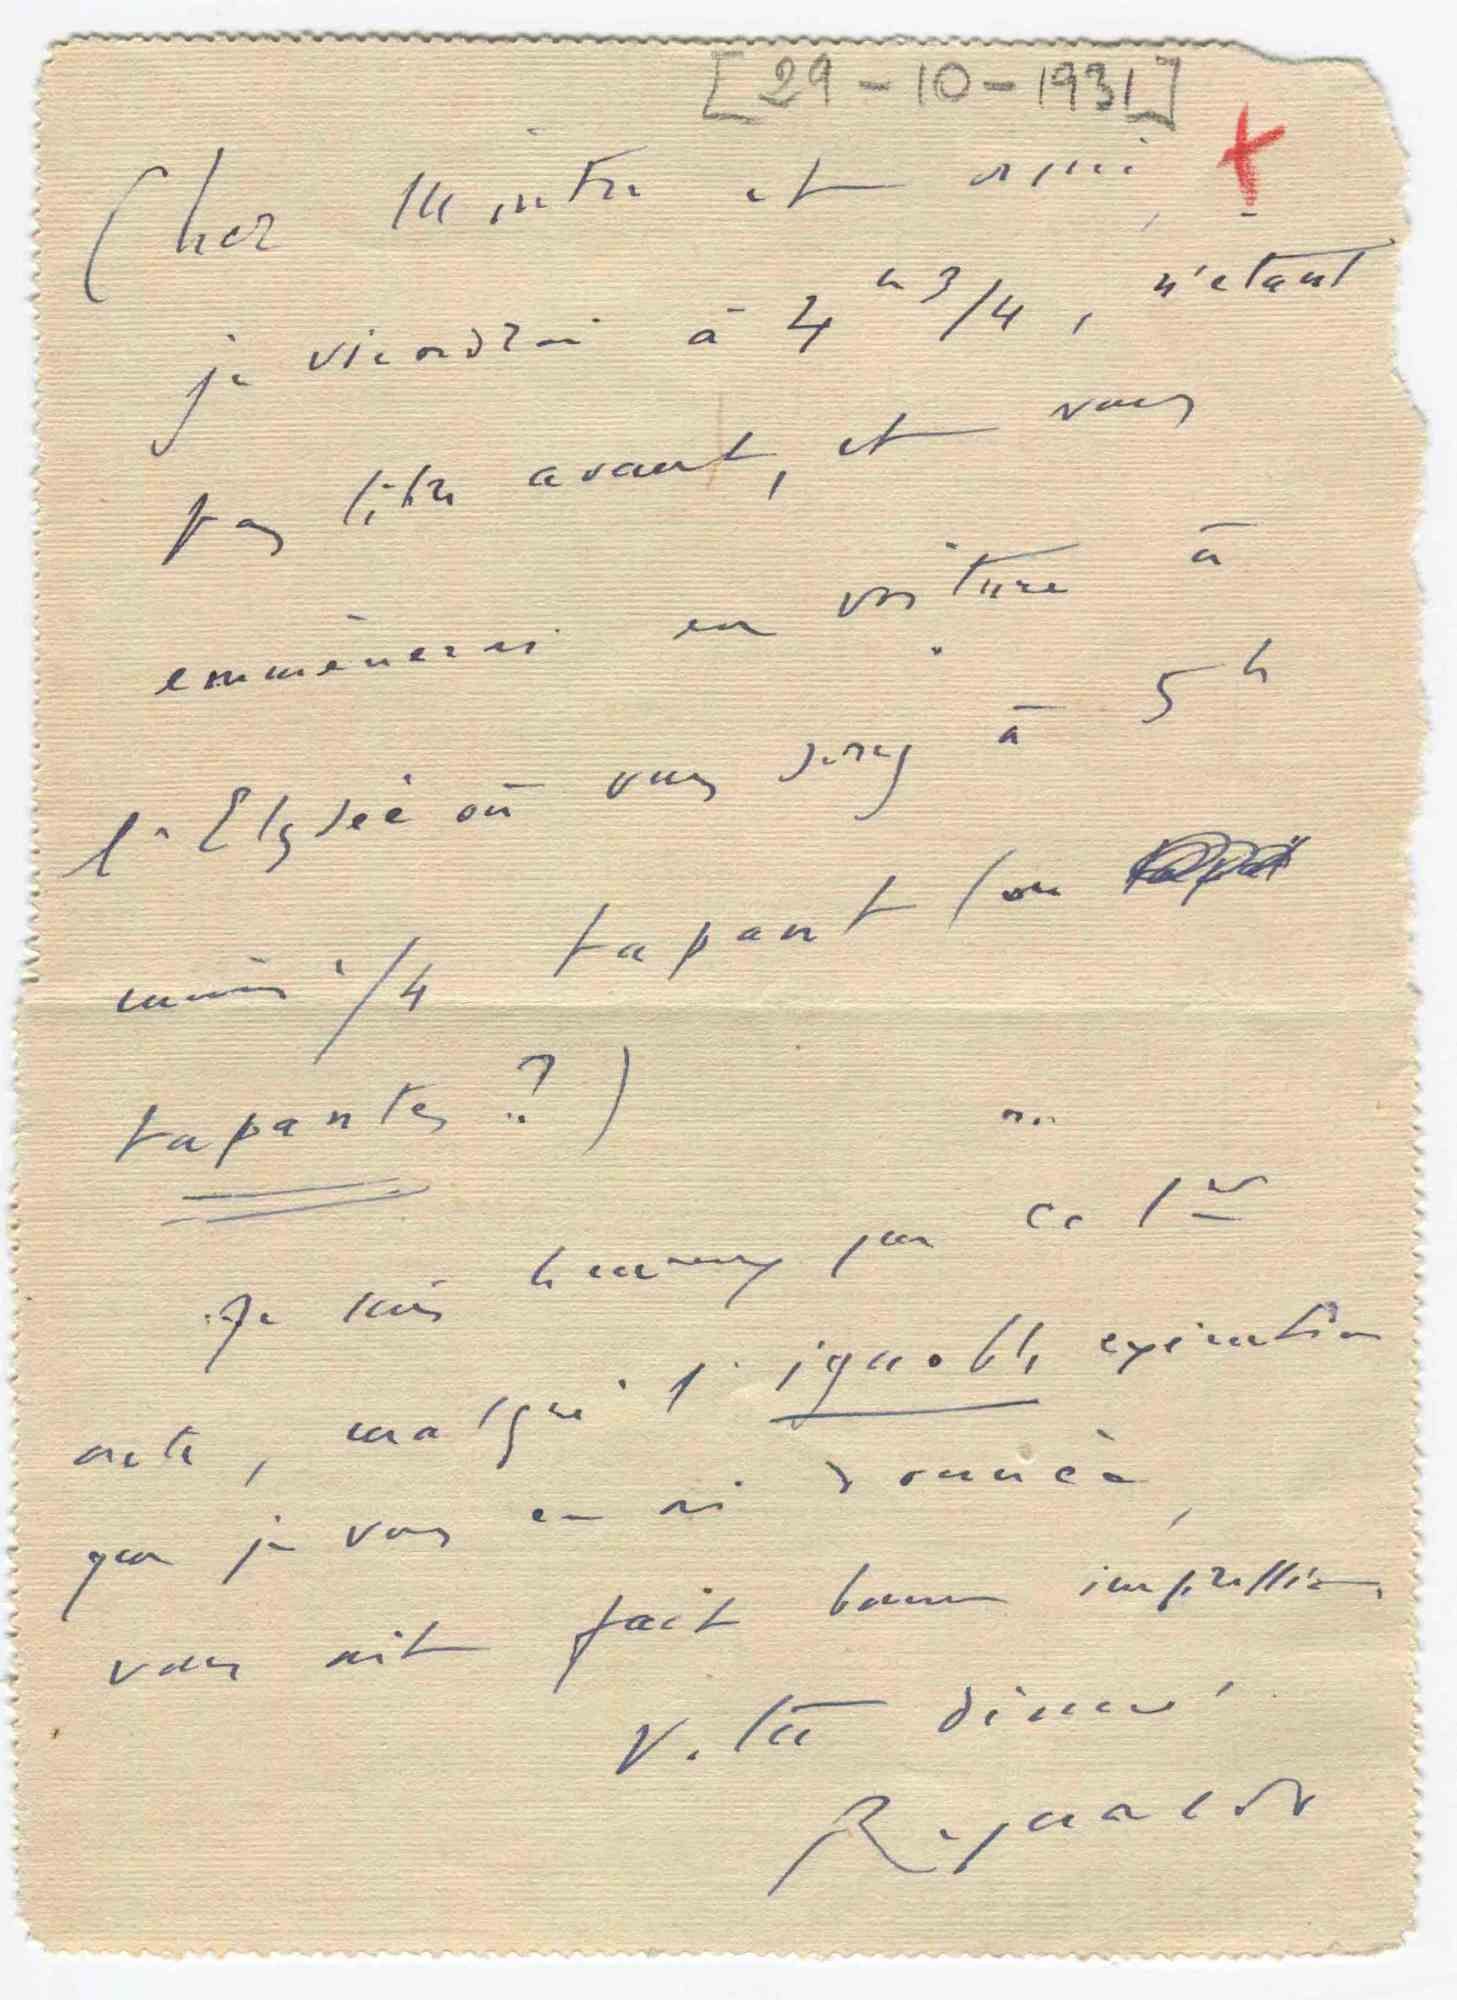 [29-10-1931]
Cher Maître et ami,
je viendrai à 4 h 3/4, n'étant
pas libre avant, et vous
emmènerai en voiture à
l'Elysée où vous serez à 5h
moins 1/4 tapant (ou
tapantes ?)
Je suis heureux que ce 1er
acte, malgré l'ignoble exécution
que je vous en ai donnée,
vous ait fait bonne impression.
Votre dévoué
Reynaldo